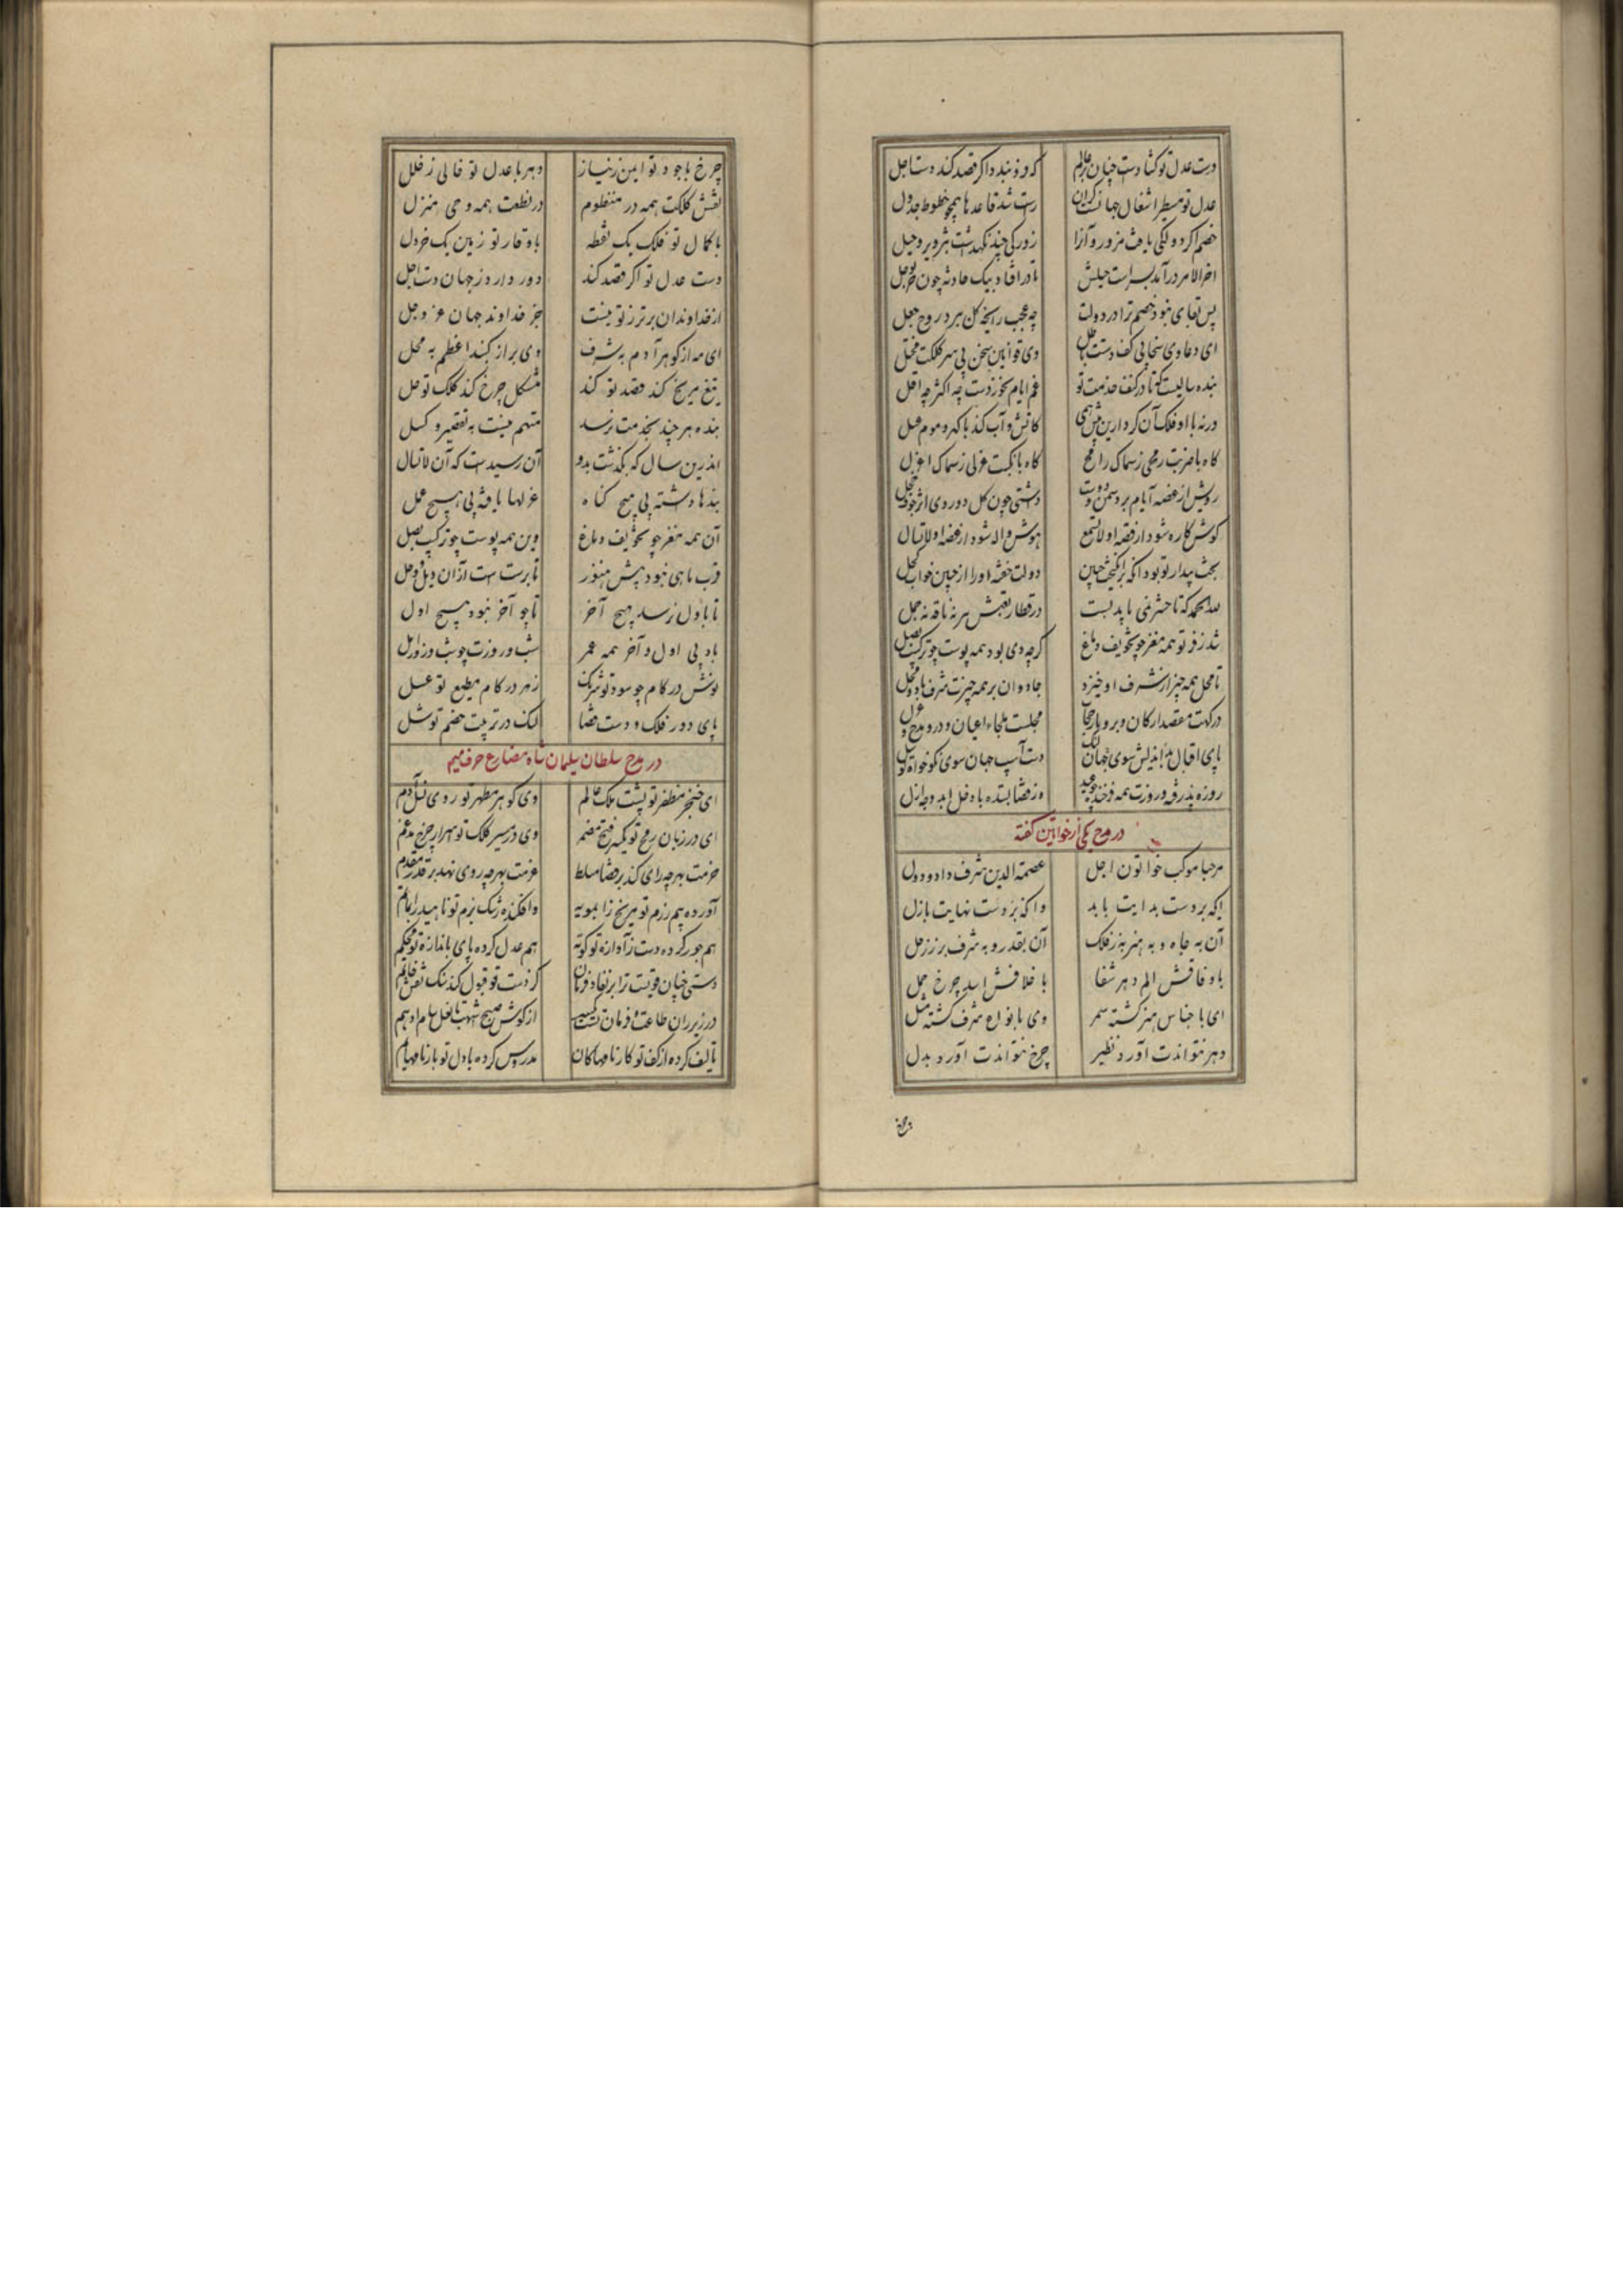 دست عدل تو کشادست چنان بر عالم که فرو بندد اگر قصد کند دست اجل
عدل تو مسطر اشغال جهانست کزان راست شد قاعدها همچو خطوط جدول
خصم اگر دولتکی یافت مزور و آنرا روزکی چند نگهداشت بتزویر و حیل
آخر الامر درآمد بسر است حیلش تا درافتاد بیک حادثه چون خر بوحل
پس بجای نبود خصم ترا در دولت چه عجب رایحه گل ببرد روح جعل
ای دعاوی سخا بی کف دستت باطل وی قوانین سخن بی سر کلکت مختل
بنده سالیست که تا در کنف خدمت تو غم ایام نخوردست چه اکثر چه اقل
ورنه با او فلک آن کرد ازین پیش همی کاتش و آب کند با گهر و موم عسل
گاه با ضربت رمحی ز سماک رامح گاه با نکبت عزلی ز سماک اعزل
رویش از غصه ایام بر دشمن و دوست داشتی چون گل دو روی اثر خوف و خجل
گوش کاره شود از قصه او لا تسمع هوش واله شود از غصه او لا تسال
بخت بیدار تو بود آنکه برانگیخت چنین دولت خفته او را ز چنین خواب کسل
لله الحمد که تا حشر نمی باید بست در قطار تعبش بر نه ناقه نه جمل
شد ز فر تو همه مغز چو تجویف دماغ گرچه دی بود همه پوست چو ترکیب بصل
تا محل همه چیز از شرف او خیزد جاودان بر همه چیزت شرف باد و محل
درگهت مقصد ارکان و برو بار حجاب مجلست ملجاء اعیان و درو مدح و غزل
پای اقبال بداندیش سوی جهان لنگ دست آسیب جهان سوی نکوخواه تو شل
روزه پذرفته و روزت همه فرخنده چو عید وز قضا بستده با دخل ابد وجه ازل
در مدح یکی از خواتین گفته
مرحبا موکب خاتون اجل عصمة الدین شرف داد و دول
ایکه بر دست بدایت بابد وآنکه بر دست نهایت بازل
آن به جاه و به هنر به ز فلک آن بقدر و به شرف برز زحل
با وفاقش الم دهر شفا با خلافش اسد چرخ حمل
ای باجناس هنر گشته سمر وی بانواع شرف گشته مثل
دهر نتواندت آورد نظیر چرخ نتواندت آورد بدل
چرخ
چرخ با جود تو ایمن ز نیاز دهر با عدل تو خالی ز خلل
نقش کلکت همه در منظوم در نطقت همه وحی منزل
با کمال تو فلک یک نقطه با وقار تو زمین یک خردل
دست عدل تو اگر قصد کند دور دارد ز جهان دست اجل
از خداوندان برتر ز تو نیست جز خداوند جهان عز و جل
ای مه از گوهر آدم به شرف وی بر از گنبد اعظم به محل
تیغ مریخ کند قصد تو کند مشکل چرخ کند کلک تو حل
بنده هر چند بخدمت نرسد متهم نیست به تقصیر و کسل
اندرین سال که بگذشت بدو آن رسیدست که آن لا تسال
بندها داشته بی هیچ گناه عزلها یافته بی هیچ عمل
آن همه مغز چو تجویف دماغ وین همه پوست چو ترکیب بصل
قرب ماهی نبود بیش هنوز تا برست است از آن ویل و وحل
تا باول نرسد هیچ آخر تا چو آخر نبود هیچ اول
باد بی اول و آخر همه عمر شب و روزت چو شب و روز اول
نوش در کام حسود تو شرنگ زهر در کام مطیع تو عسل
پای دور فلک و دست قضا لنگ در تربیت خصم تو شل
در مدح سلطان سلیمان شاه مضارع حرف میم
ای خنجر مظفر تو پشت ملک عالم وی گوهر مطهر تو روی نسل آدم
ای در زبان رمح تو تکبیر فتح مضمر وی در مسیر کلک تو اسرار چرخ مدغم
حزمت بهر چه رای کند بر قضا مسلط عزمت بهر چه روی نهد بر قدر مقدم
آورده بیم رزم تو مریخ را بمویه وافکنده رشک بزم تو ناهید را بماتم
هم جور کرده دست ز آوازه تو کوته هم عدل کرده پای باندازه تو محکم
دستی چنان قویست ترا بر نفاذ فرمان کز دست تو قبول کند سنگ نقش خاتم
در زیر ران طاعت و فرمان تست گیتی از گوش صبح اشهب تا نعل شام ادهم
تالیف کرده از کف تو کارنامها کان مدروس کرده با دل تو بارنامها یم